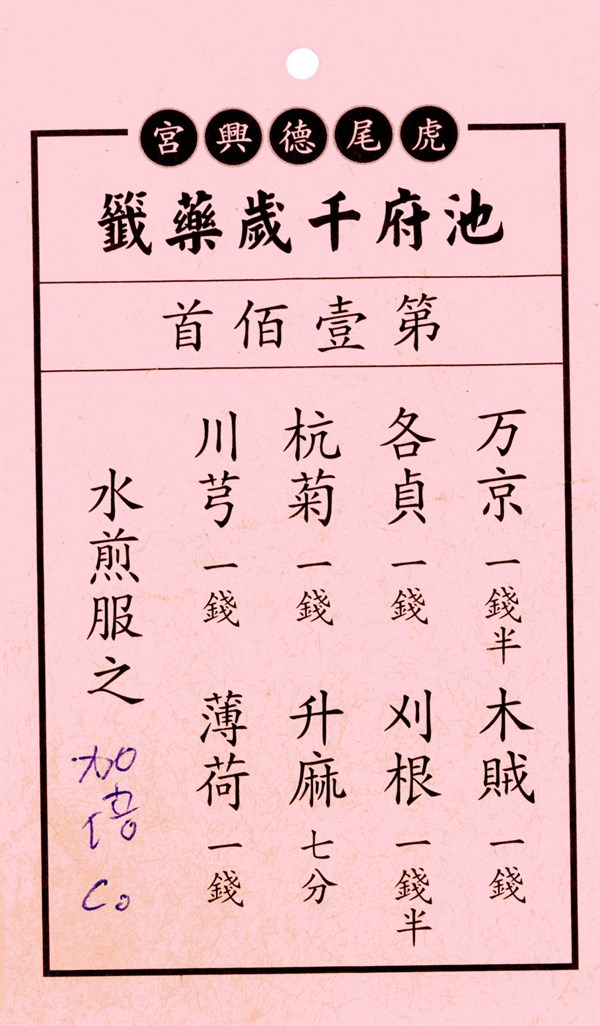 虎尾德興宮
池府千歲藥籤
第壹佰首
万京 一錢半 木賊 一錢
各貞 一錢 刈根 一錢半
杭菊 一錢 升麻 七分
川芎 一錢 薄荷 一錢
水煎服之 加倍